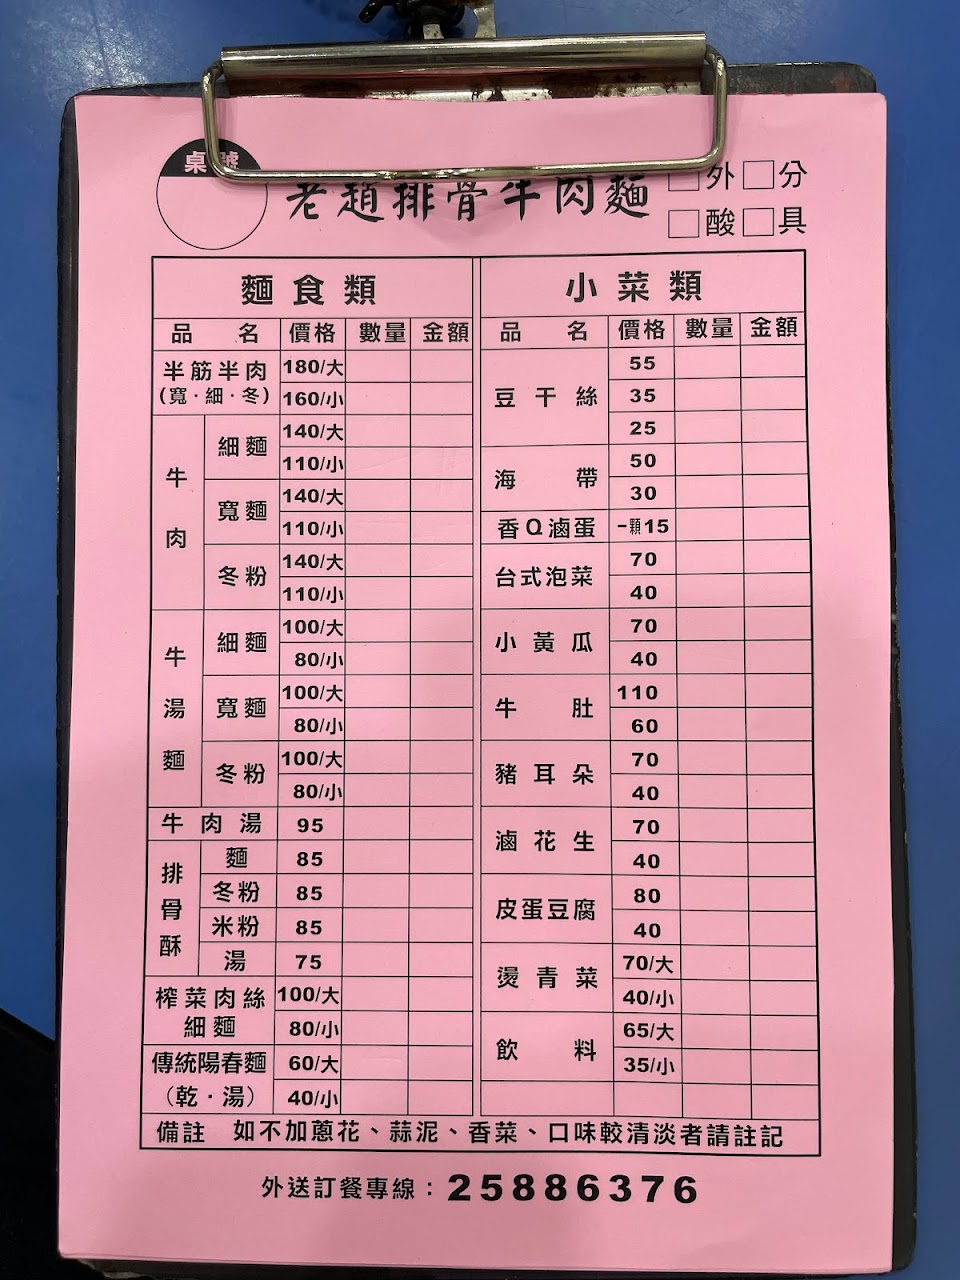 桌號
老趙排骨牛肉麵
外 分
酸 具
麵食類
品名 價格 數量 金額
半筋半肉 180/大
(寬·細·冬) 160/小
牛肉
細麵 140/大
110/小
寬麵 140/大
110/小
冬粉 140/大
110/小
牛湯麵
細麵 100/大
80/小
寬麵 100/大
80/小
冬粉 100/大
80/小
牛肉湯 95
排骨酥
麵 85
冬粉 85
米粉 85
湯 75
榨菜肉絲 100/大
細麵 80/小
傳統陽春麵 60/大
(乾·湯) 40/小
小菜類
品名 價格 數量 金額
豆干絲 55
35
25
海帶 50
30
香Q滷蛋 一顆15
台式泡菜 70
40
小黃瓜 70
40
牛肚 110
60
豬耳朵 70
40
滷花生 70
40
皮蛋豆腐 80
40
燙青菜 70/大
40/小
飲料 65/大
35/小
備註 如不加蔥花、蒜泥、香菜、口味較清淡者請註記
外送訂餐專線：25886376